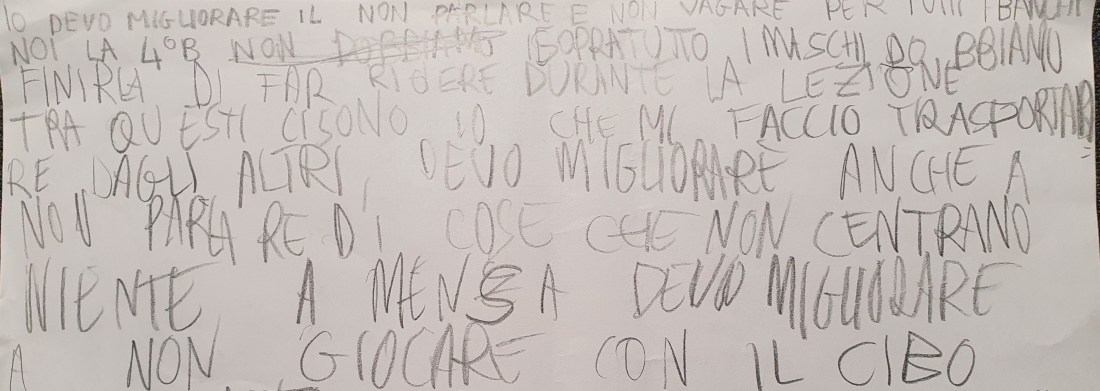 IO DEVO MIGLIORARE IL NON PARLARE E NON VAGARE PER TUTTI I BANCHI
NOI LA 4°B NON DOBBIAMO (SOPRATUTTO I MASCHI) DOBBIANO
FINIRLA DI FAR RIDERE DURANTE LA LEZIONE
TRA QUESTI CISONO IO CHE MI FACCIO TRASPORTAR
RE DAGLI ALTRI, DEVO MIGLIORARE ANCHE A
NON PARLARE DI COSE CHE NON CENTRANO
NIENTE, A MENSA DEVO MIGLIORARE
A NON GIOCARE CON IL CIBO